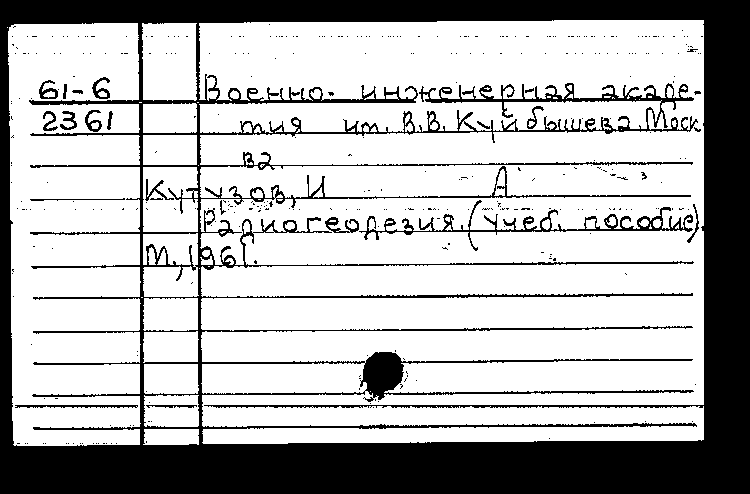 61-6 Военно-инженерная акаде-
2361 мия им. В.В. Куйбышева. Моск
ва.
Кутузов, И А
Радиогеодезия. (Учеб. пособие).
М., 1961.